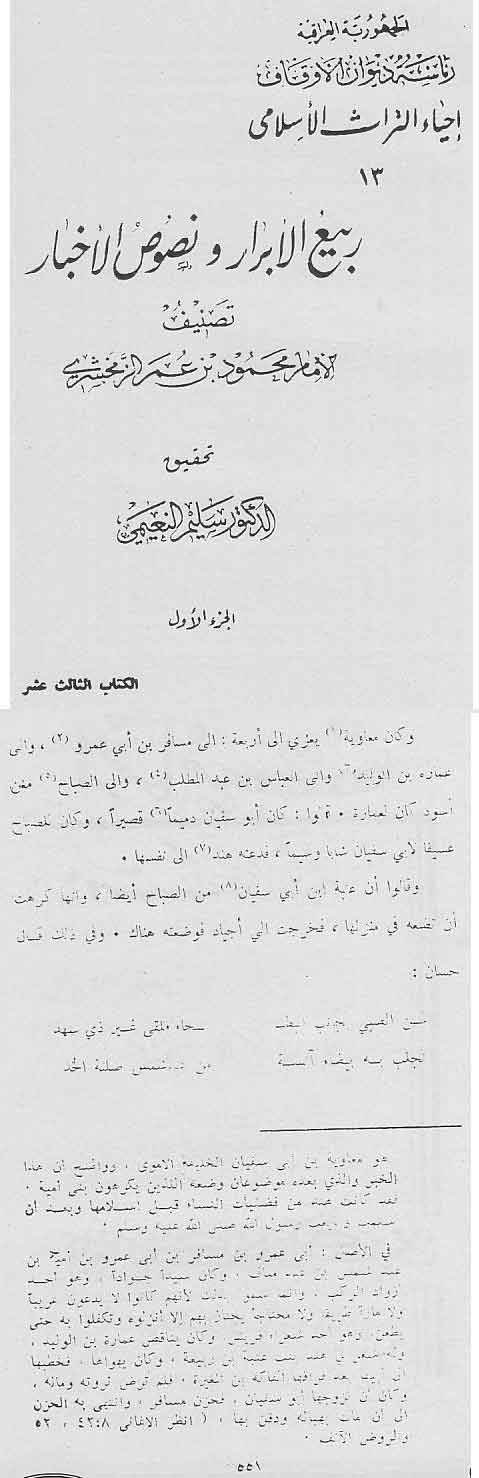 الجمهورية العراقية
رئاسة ديوان الأوقاف
إحياء التراث الإسلامي
١٣
ربيع الأبرار ونصوص الأخبار
تصنيف
الإمام محمود بن عمر الزمخشري
تحقيق
الدكتور سليم النعيمي
الجزء الأول
الكتاب الثالث عشر
وكان معاوية(١) يعزي الى أربعة : الى مسافر بن أبي عمرو (٢) ، والى
عمارة بن الوليد والى العباس بن عبد المطلب(٤) ، والى الصباح(٥) مغن
أسود كان لعمارة ٠ قالوا : كان أبو سفيان دميماً(٦) قصيراً ، وكان للصباح
عسيفا لابي سفيان شابا وسيماً ، فدعته هند(٧) الى نفسها ٠
وقالوا أن عتبة ابن أبي سفيان(٨) من الصباح أيضا ، وانها كرهت
أن تضعه في منزلها ، فخرجت الى أجياد فوضعته هناك ٠ وفي ذلك قال
حسان :
لمن الصبي بجانب البطحاء ملقى غير ذي سهد
نجلت به بيضاء آنسة من عبد شمس صلتة الخد
هو معاوية بن أبي سفيان الخليفة الاموي ، وواضح أن هذا
الخبر والذي بعده موضوعان وضعه اللذين يكرهون بني أمية ٠
فقد كانت هند من فضليات النساء قبل اسلامها وبعد أن
رسول الله صلى الله عليه وسلم ٠
في الأصل : أبي عمرو بن مسافر بن أبي عمرو بن أمية بن
عبد شمس بن عبد مناف ، وكان سيداً جواداً ، وهو أحد
أزواد الركب ، وانما سموا بذلك لأنهم كانوا لا يدعون غريباً
ولا مارة طريق ولا محتاجاً يجتاز بهم إلا أنزلوه وتكفلوا به حتى
يظعن، وهو أحد شعراء قريش، وكان يناقض عمارة بن الوليد ،
وله شعر في هند بنت عتبة بن ربيعة ، وكان يهواها ، فخطبها
الى أبيها بعد فراقها الفاكه بن المغيرة ، فلم ترض ثروته وماله ،
وكان أن تزوجها أبو سفيان ، فحزن مسافر ، وانتهى به الحزن
الى أن مات بهبالة ودفن بها ، ( انظر الاغاني ٤٢:٨ ، ٥٢
والروض الآنف ٠
٥٥١